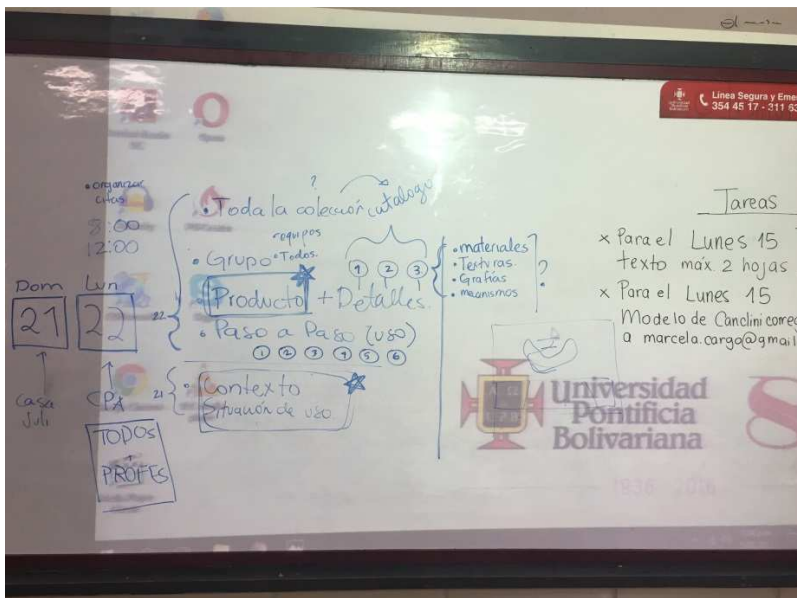 Línea Segura y Eme
354 45 17 - 311 63
• organizar
citas
8:00
12:00
Dom
Lun
21
22
Casa
Juli
CPA
TODOS
+
PROFES
?
• Toda la colección catalogo
• Grupo
• equipos
• Todos.
Producto + Detalles.
1 2 3
22
• Paso a Paso (uso)
1 2 3 4 5 6
21
• Contexto
Situación de uso
• materiales
• Texturas.
• Grafías
• mecanismos
?
Tareas
x Para el Lunes 15
texto máx 2 hojas
x Para el Lunes 15
Modelo de Canclini correg
a marcela.cargo@gmail
Universidad
Pontificia
Bolivariana
1936 2016